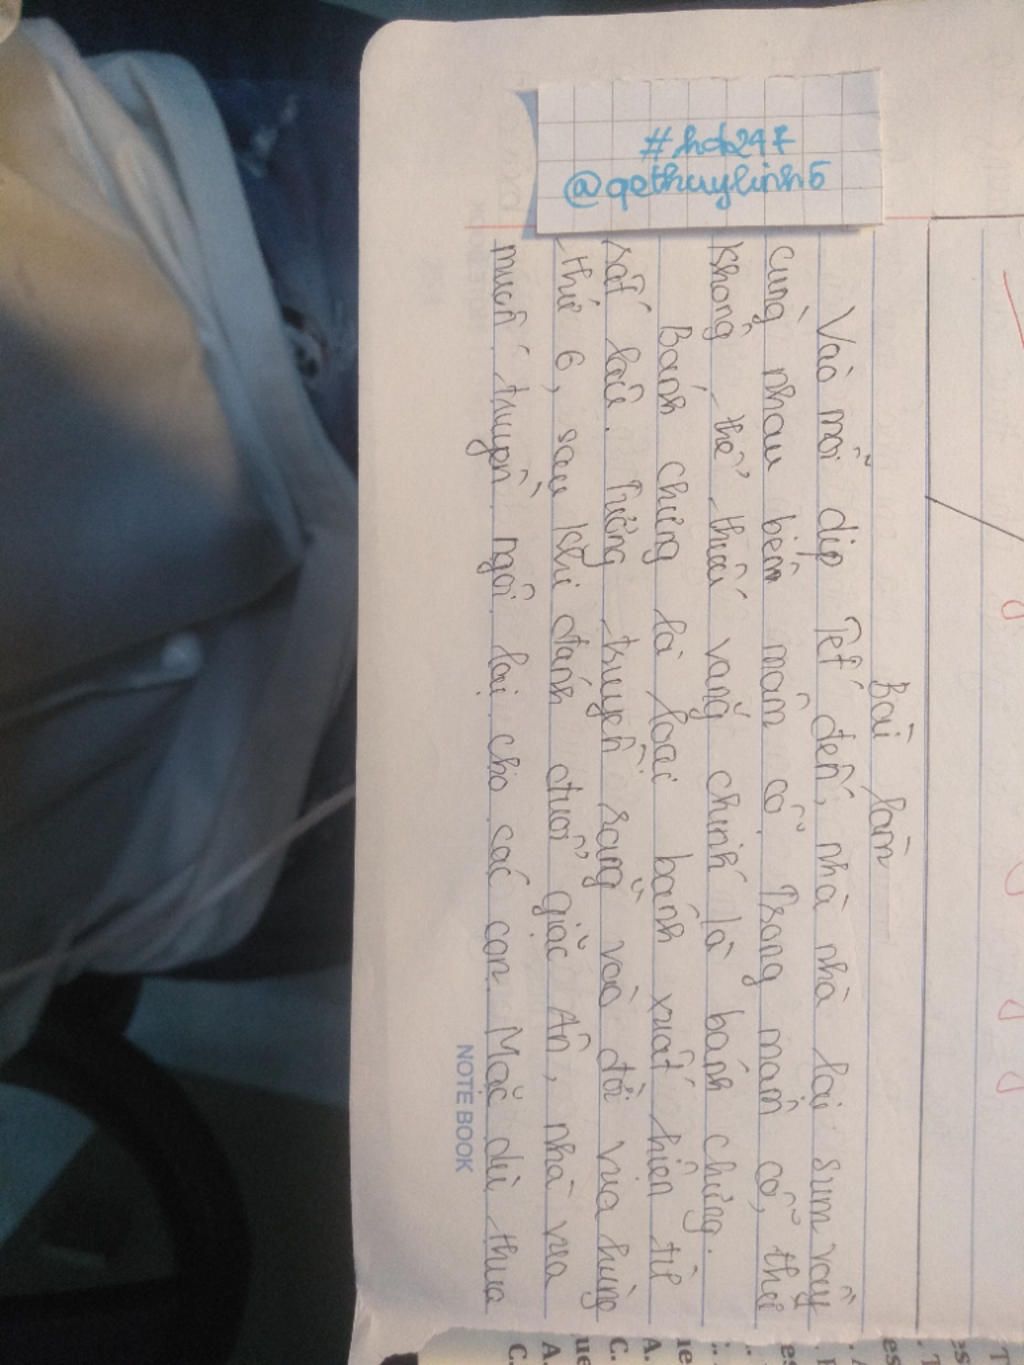 #hdb247
@qethuylinh5
Bài làm
Vào mỗi dịp Tết đến, nhà nhà lại sum vầy
cùng nhau bên mâm cỗ. Trong mâm cỗ, thứ
không thể thiếu vắng chính là bánh chưng.
Bánh chưng là loại bánh xuất hiện từ
rất lâu. Tương truyền rằng vào đời vua hùng
thứ 6, sau khi đánh đuổi giặc Ân, nhà vua
muốn truyền ngôi lại cho các con. Mặc dù thua
NOTE BOOK